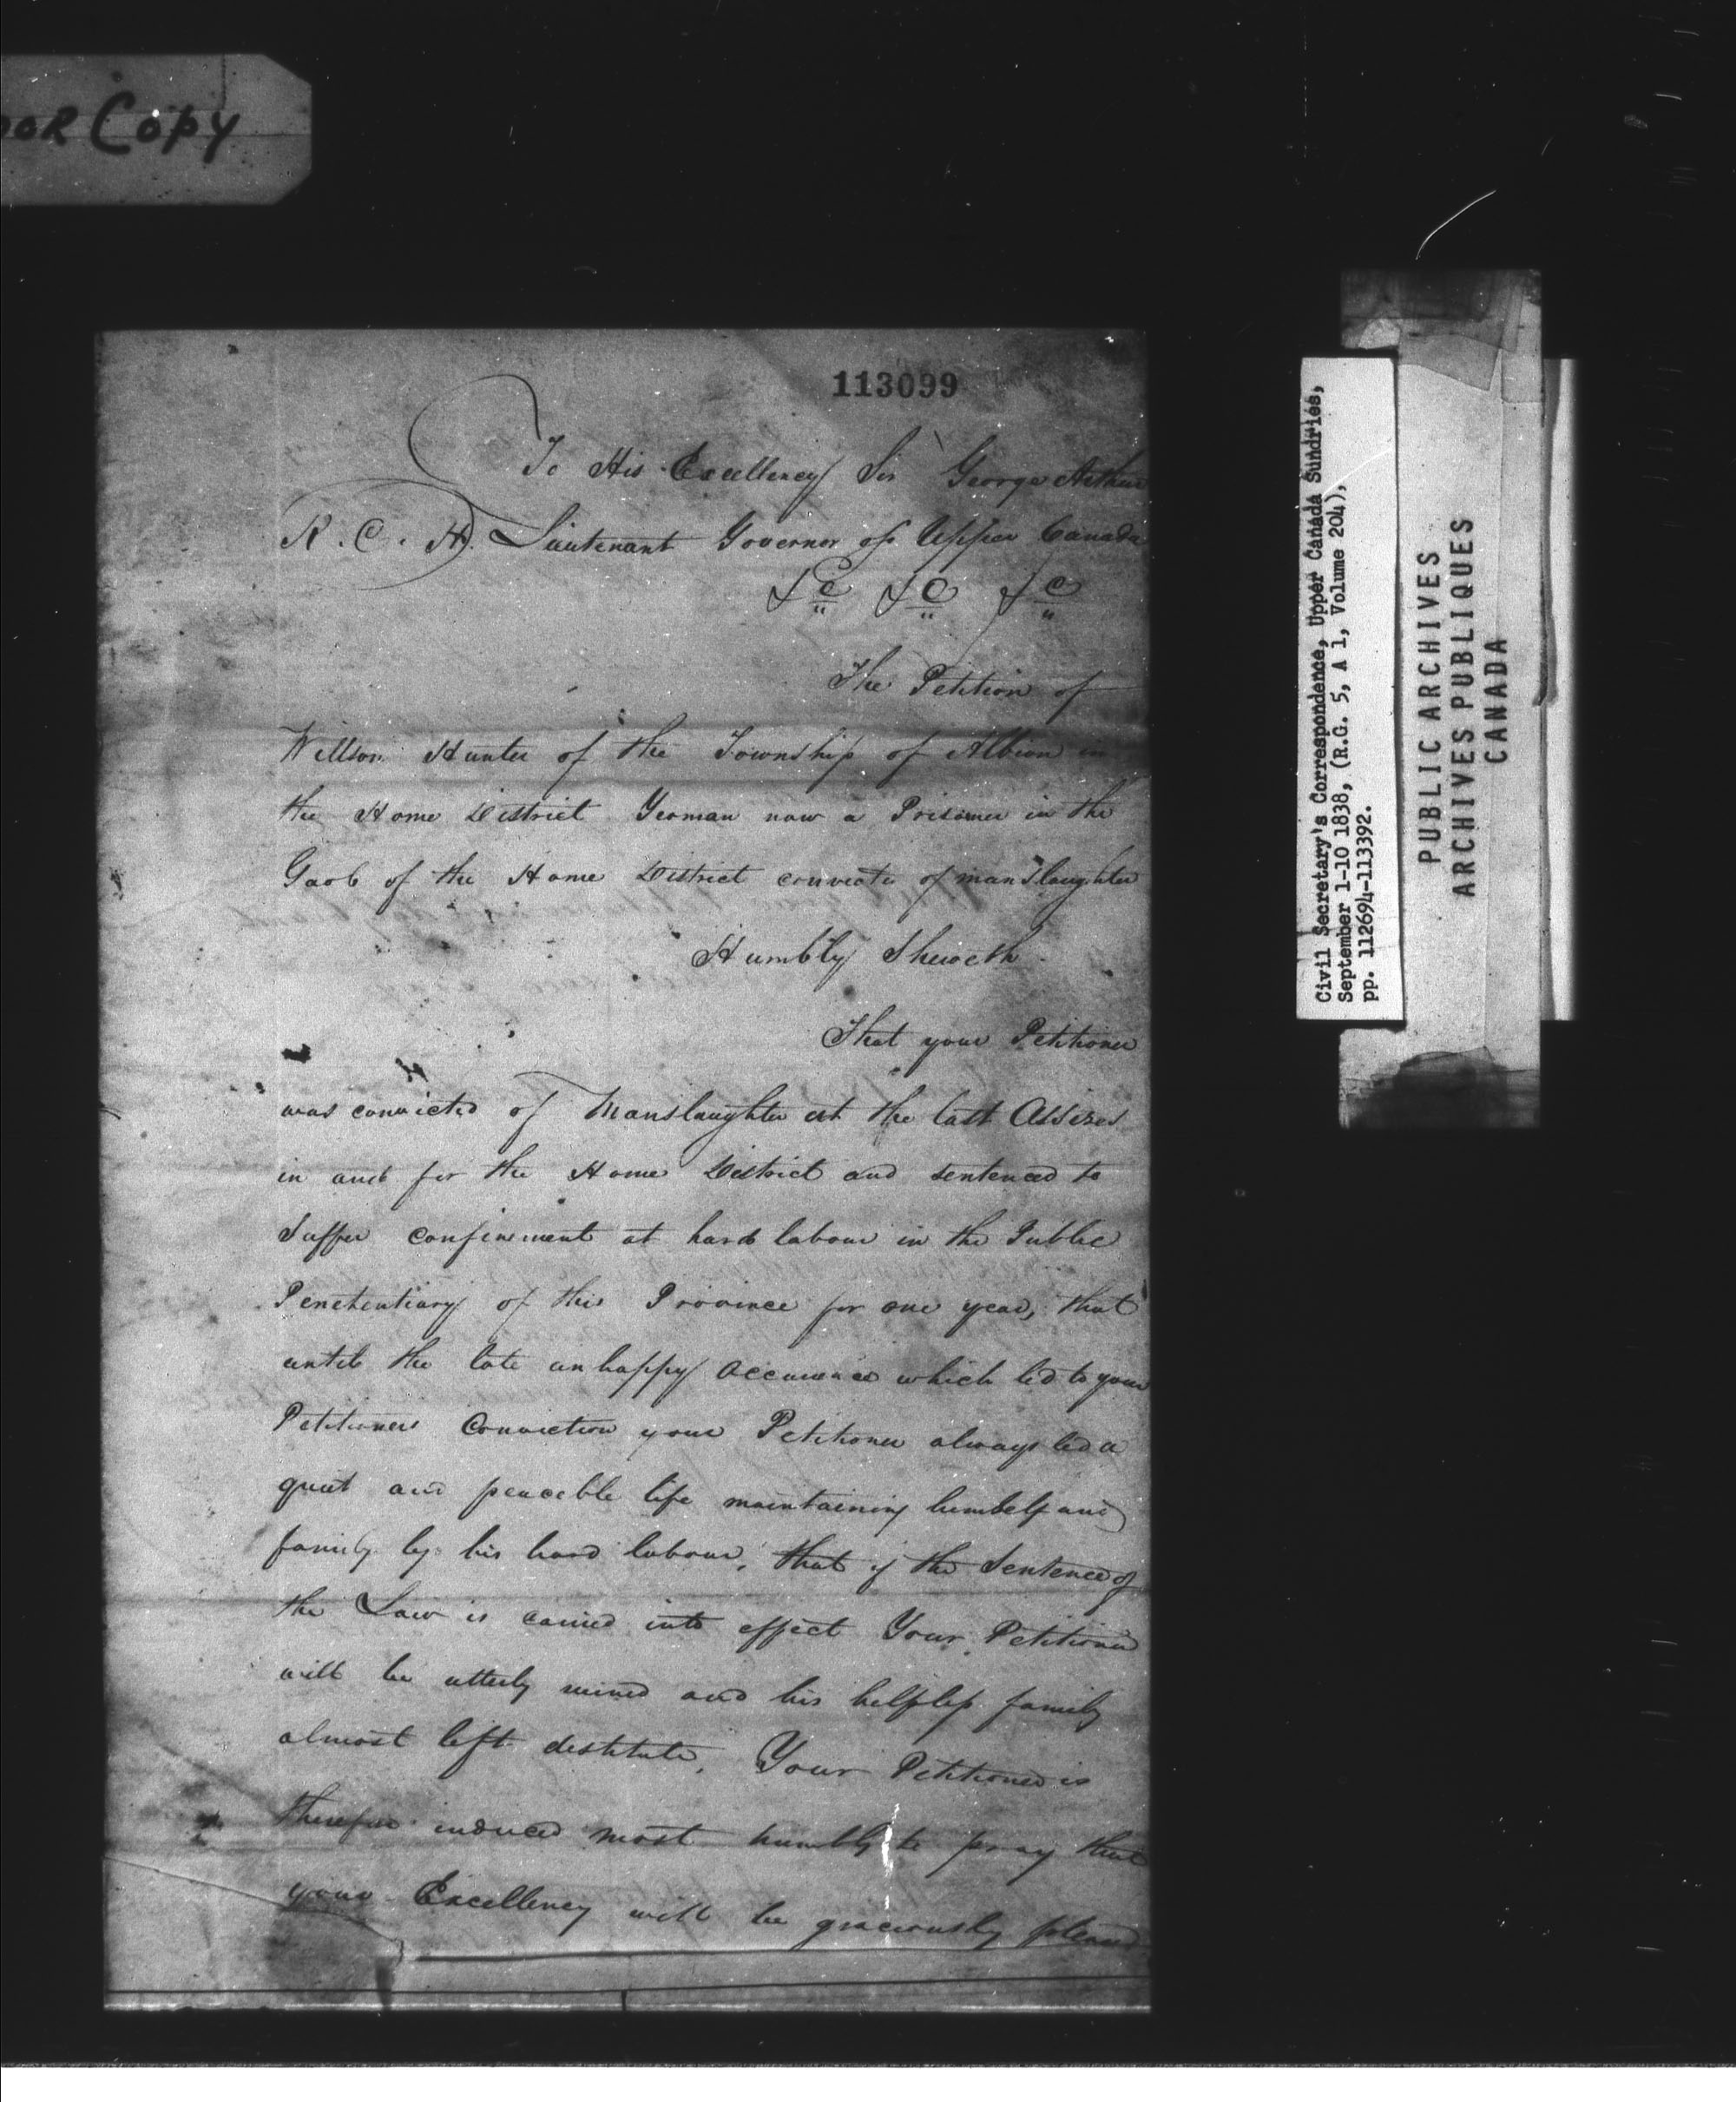 oor Copy
113099
To His Excellency Sir George Arthur
K. C. H. Lieutenant Governor of Upper Canada
&c &c &c
The Petition of
Willson Hunter of the Township of Albion in
the Home District Yeoman now a Prisoner in the
Gaol of the Home District convicte of manslaughter
Humbly Sheweth
That your Petitioner
was convicted of Manslaughter at the last Assizes
in and for the Home District and sentenced to
Suffer confinement at hard labour in the Public
Penetentiary of this Province for one year, that
until the late unhappy occurrence which led to your
Petitioners Conviction your Petitioner always led a
quiet and peaceble life maintaining himself and
family by his hard labour, that if the Sentence of
the Law is carried into effect Your Petitioner
will be utterly ruined and his helpless family
almost left destitute. Your Petitioner is
therefore induced most humbly to pray that
your Excellency will be graciously pleased
Civil Secretary's Correspondence, Upper Canada Sundries,
September 1-10 1838, (R.G. 5, A 1, Volume 204),
pp. 112694-113392.
PUBLIC ARCHIVES
ARCHIVES PUBLIQUES
CANADA